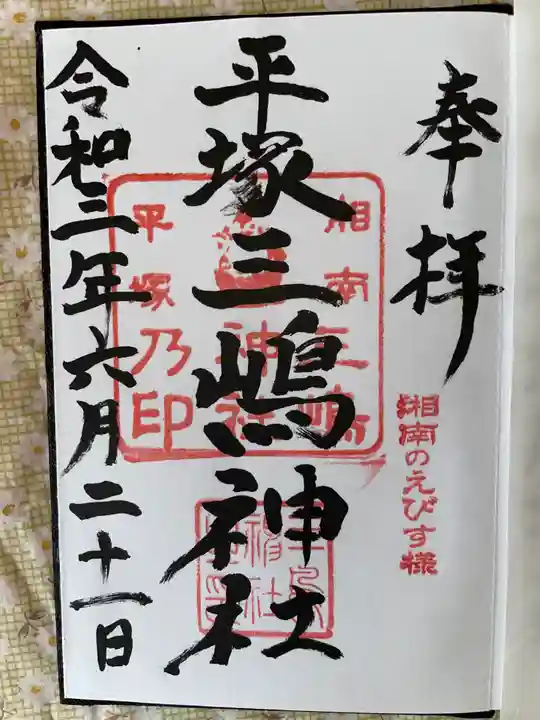 奉拝
湘南のえびす様
平塚三嶋神社
湘南三嶋
神社
平塚乃印
令和三年六月二十一日